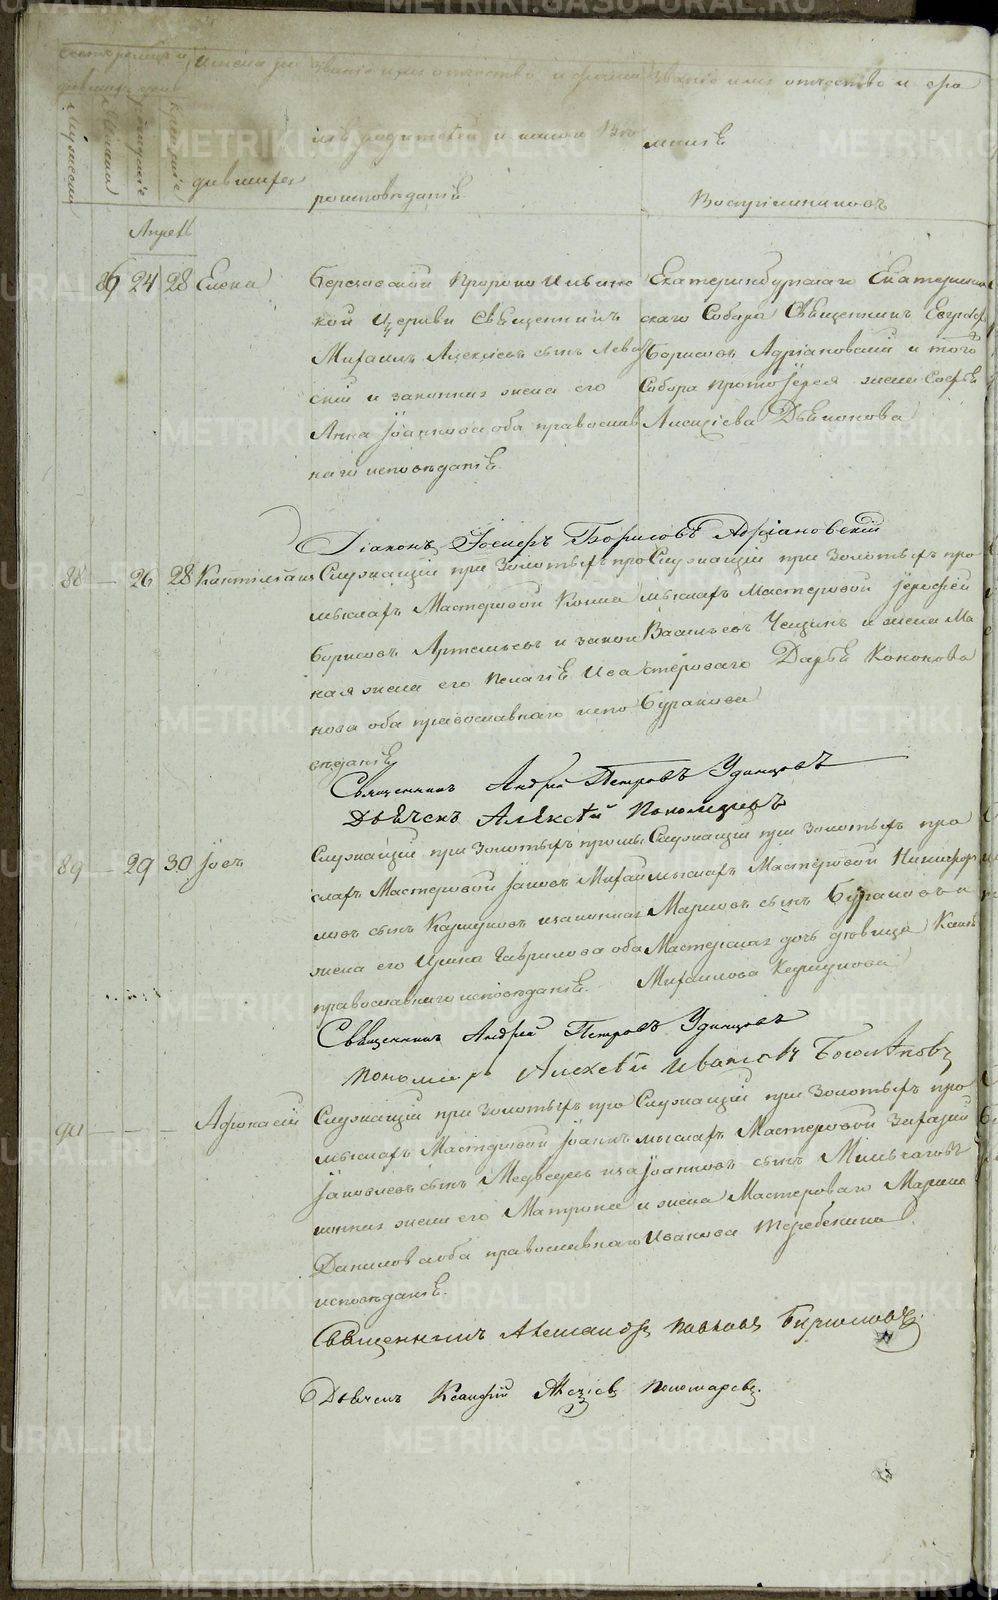 Счетъ родив
шихся
Имена ро
дившихся
Званiе имя отчество и фамилiя
родителей и какого вѣро
исповѣданiя
Званiе имя отчество и фа
милiя
Воспрiемниковъ
Мужеска
Женска
Рожденiе
Крещенiе
Апрель
86 24 28 Елена
Березовской Пророко Ильинс
кой Церкви Священникъ
Михаилъ Алексѣевъ сынъ Левит
скiй и законная жена его
Анна Iоаннова оба православ
наго исповѣданiя.
Екатеринбургскаго Екатеринин
скаго Собора Священникъ Евграфъ
Борисовъ Адрiановскiй и того
Собора Протоiерея жена Софья
Алексѣева Дьяконова
Дiаконъ Iосифъ Борисовъ Адрiановскiй
88 — 26 28 Капитолина
Служащiй при Золотыхъ про
мыслахъ Мастеровой Козма
Борисовъ Артемьевъ и закон
ная жена его Пелагiя Ива
нова оба православнаго испо
вѣданiя
Служащiй при Золотыхъ про
мыслахъ Мастеровой Iерофей
Васильевъ Чещинъ и жена Ма
стероваго Дарья Кононова
Буракова
Священникъ Андрей Петровъ Удинцовъ
Дьячекъ Алексѣй Пономаревъ
89 — 29 30 Iовъ
Служащiй при Золотыхъ промы
слахъ Мастеровой Iаковъ Михай
ловъ сынъ Кожуховъ и законная
жена его Ирина Гаврилова оба
православнаго исповѣданiя.
Служащiй при Золотыхъ про
мыслахъ Мастеровой Никифоръ
Марковъ сынъ Бураковъ и
Мастерская дочь девица
Михайлова Кожухова
Священникъ Андрей Петровъ Удинцовъ
Пономарь Алексѣй Ивановъ Богомоловъ
90 — — — Афонасiй
Служащiй при Золотыхъ про
мыслахъ Мастеровой Iоаннъ
Iаковлевъ сынъ Медведевъ и за
конная жена его Матрона
Данилова оба православнаго
исповѣданiя.
Служащiй при Золотыхъ про
мыслахъ Мастеровой
Iоанновъ сынъ Мильчаговъ
и жена Мастероваго Марина
Иванова Теребенина.
Священникъ Александръ Павловъ Бирюковъ
Дьячекъ Ксанфiй Алексiевъ Пономаревъ.
METRIKI.GASO-URAL.RU